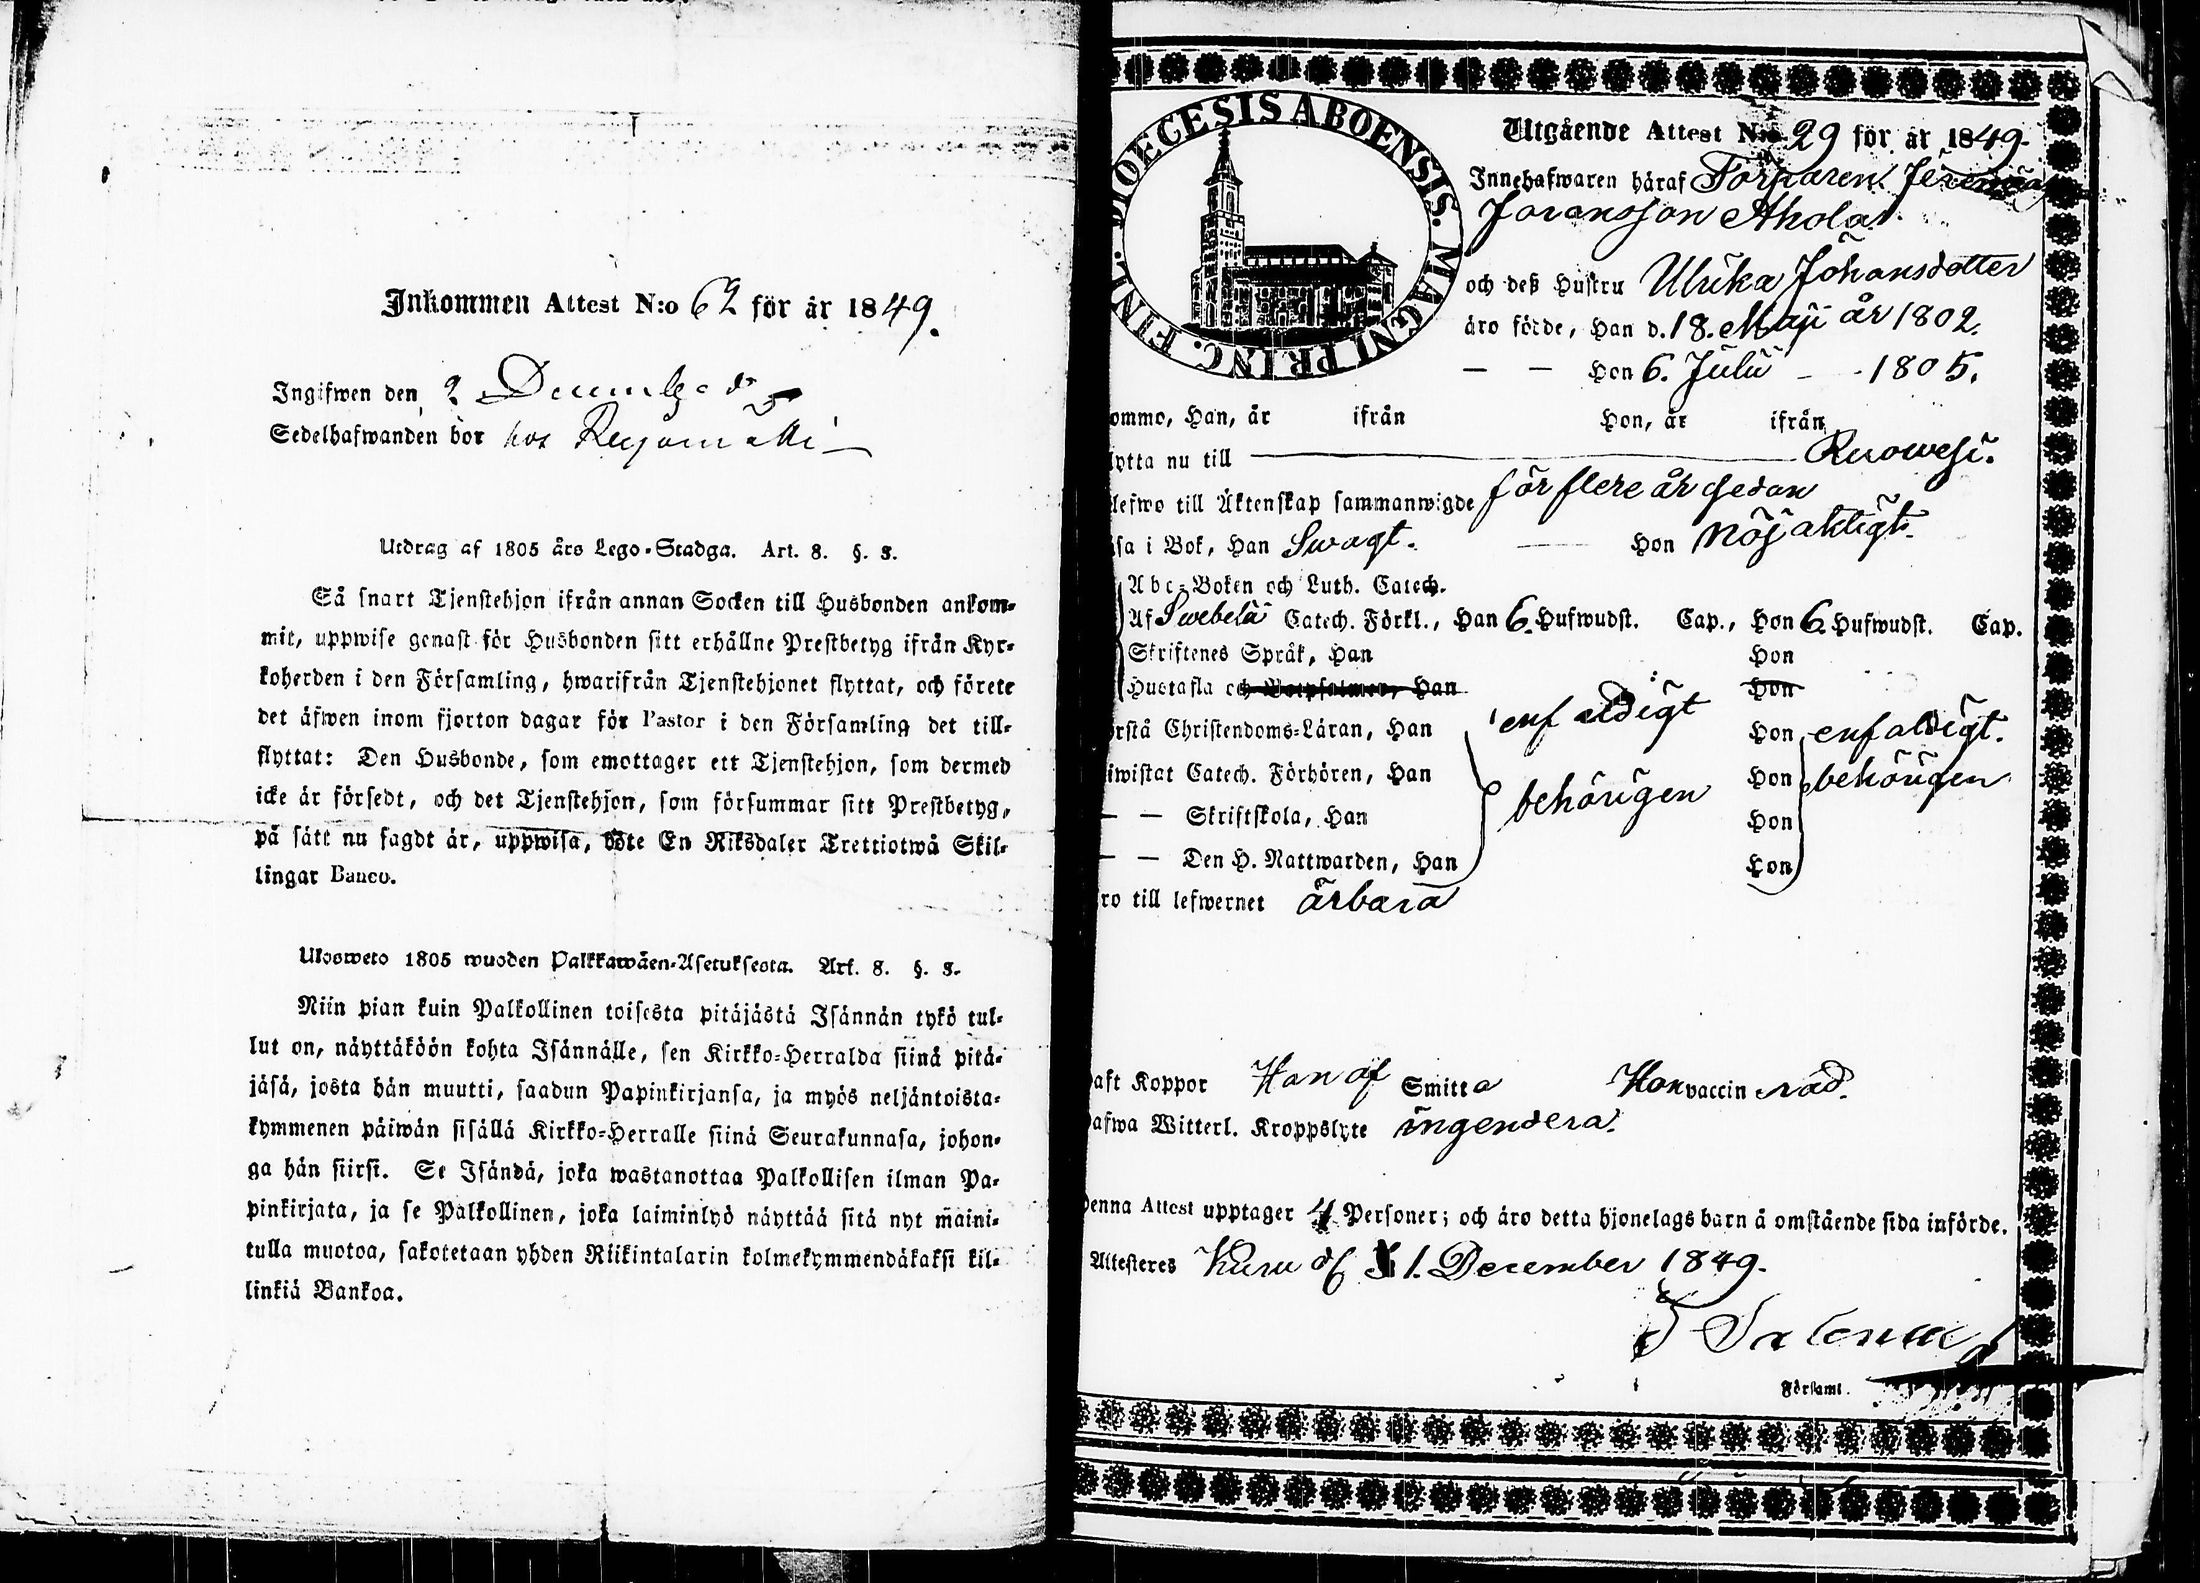 Inkommen Attest N:o 62 för år 1849.
Ingifwen den 2 December
Sedelhafwanden bor hos
Utdrag af 1805 års Lego-Stadga. Art. 8. §. 3.
Så snart Tjenstehjon ifrån annan Socken till Husbonden ankom-
mit, uppwise genast för Husbonden sitt erhållne Prestbetyg ifrån Kyr-
koherden i den Församling, hwarifrån Tjenstehjonet flyttat, och förete
det äfwen inom fjorton dagar för Pastor i den Församling det till-
flyttat: Den Husbonde, som emottager ett Tjenstehjon, som dermed
icke är försedt, och det Tjenstehjon, som försummar sitt Prestbetyg,
på sätt nu sagdt är, uppwisa, böte En Riksdaler Trettiotwå Skil-
lingar Banco.
Ulosweto 1805 wuoden Palkkawäen-Asetuksesta. Art. 8. §. 3.
Niin pian kuin Palkollinen toisesta pitäjästä Isännän tykö tul-
lut on, näyttäköön kohta Isännälle, sen Kirkko-Herralda siinä pitä-
jäsä, josta hän muutti, saadun Papinkirjansa, ja myös neljäntoista-
kymmenen päiwän sisällä Kirkko-Herralle siinä Seurakunnasa, johon-
ga hän siirsi. Se Isändä, joka wastanottaa Palkollisen ilman Pa-
pinkirjata, ja se Palkollinen, joka laiminlyö näyttää sitä nyt maini-
tulla muotoa, sakotetaan yhden Riikintalarin kolmekymmendäkaksi kil-
linkiä Bankoa.
DIOECESIS ABOENSIS. MAGNI PRINC. FINL.
Utgående Attest N:o 29 för år 1849.
Innehafwaren häraf Torparen Jeremias
Joransson Ahola
och deß Hustru Ulrika Johansdotter
äro födde, Han d. 18. Maji år 1802.
— — Hon 6. Julii — - 1805.
ommo, Han, år ifrån Hon, år ifrån
lytta nu till Ruowesi.
lefwo till Äktenskap sammanwigde för flere år sedan
sa i Bok, Han Swagt. — Hon nöjaktigt.
Abc-Boken och Luth. Catech.
Af Swebelii Catech. Förkl., Han 6. Hufwudst. Cap., Hon 6. Hufwudst. Cap.
Skriftenes Språk, Han Hon
Hustafla och Botpsalmen, Han Hon
rstå Christendoms-Läran, Han enfaldigt Hon enfaldigt.
iwistat Catech. Förhören, Han behörigen Hon behörigen
— — Skriftskola, Han Hon
— — Den H. Nattwarden, Han Hon
ro till lefwernet ärbara
aft Koppor Han af Smitta Hon vaccinerad.
afwa Witterl. Kroppslyte ingendera.
Denna Attest upptager 4 Personer; och äro detta hjonelags barn å omstående sida införde.
Attesteres Kuru d. 1. December 1849.
Församl.